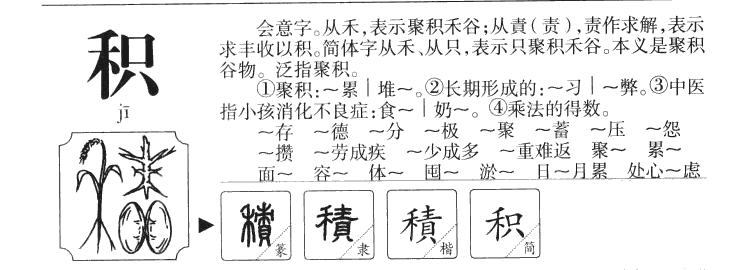 积
jī
会意字。从禾,表示聚积禾谷;从責(责),责作求解,表示
求丰收以积。简体字从禾、从只,表示只聚积禾谷。本义是聚积
谷物。泛指聚积。
①聚积:～累│堆～。②长期形成的:～习│～弊。③中医
指小孩消化不良症:食～│奶～。④乘法的得数。
～存 ～德 ～分 ～极 ～聚 ～蓄 ～压 ～怨
～攒 ～劳成疾 ～少成多 ～重难返 聚～ 累～
面～ 容～ 体～ 囤～ 淤～ 日～月累 处心～虑
積 篆 積 隶 積 楷 积 简